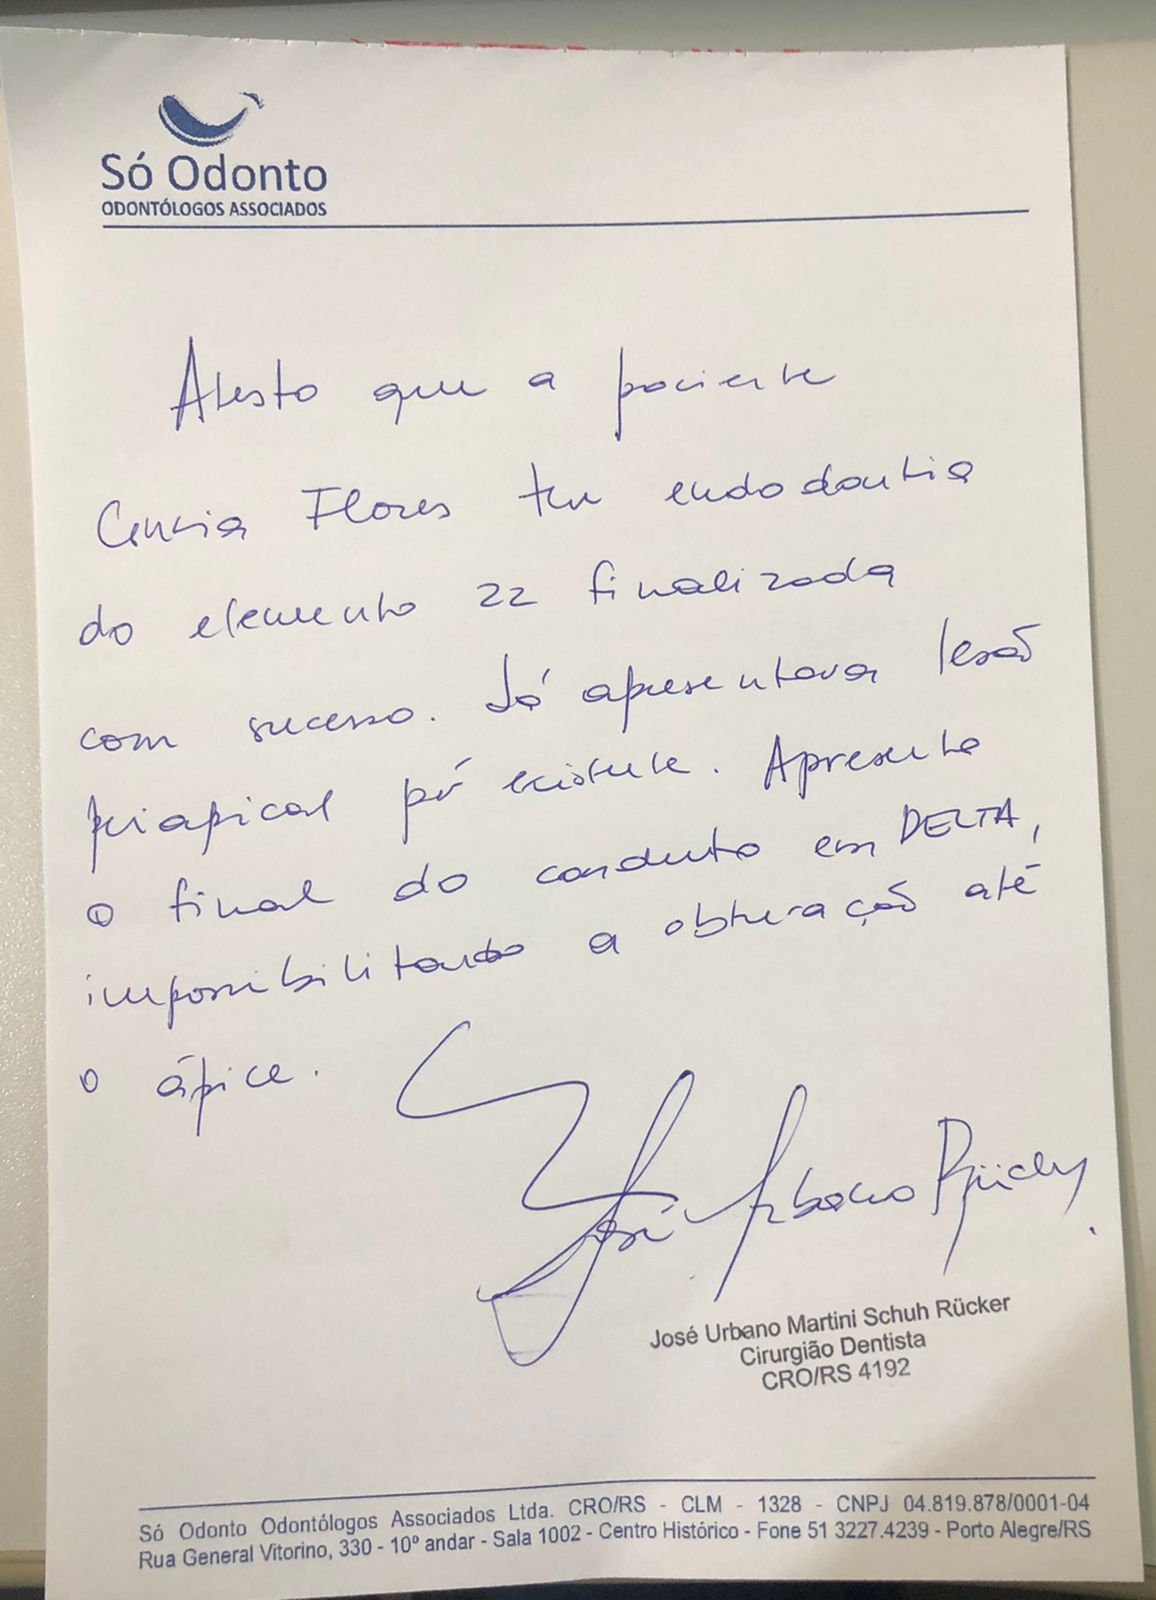 Só Odonto
ODONTÓLOGOS ASSOCIADOS
Atesto que a paciente
Flores tem endodontia
do elemento 22 finalizada
com sucesso. Já apresentava lesão
periapical pré existente. Apresenta
o final do conduto em DELTA,
impossibilitando a obturação até
o ápice.
José Urbano Rücker
José Urbano Martini Schuh Rücker
Cirurgião Dentista
CRO/RS 4192
Só Odonto Odontólogos Associados Ltda. CRO/RS - CLM - 1328 - CNPJ 04.819.878/0001-04
Rua General Vitorino, 330 - 10º andar - Sala 1002 - Centro Histórico - Fone 51 3227.4239 - Porto Alegre/RS